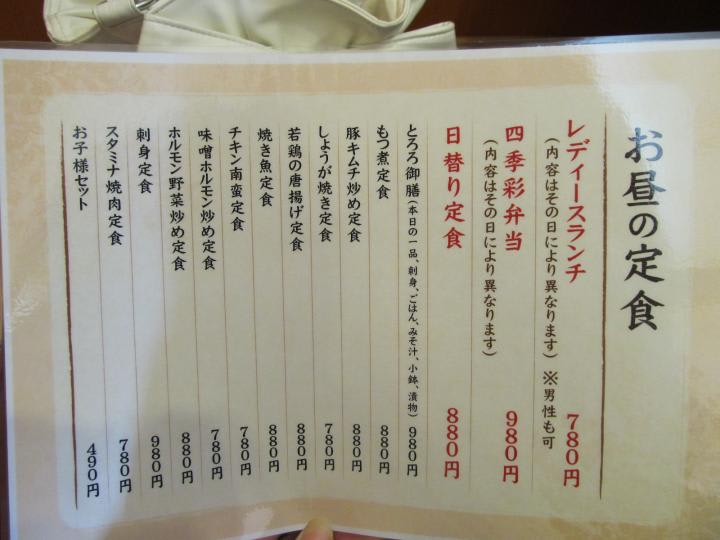 お昼の定食
レディースランチ 780円
(内容はその日により異なります) ※男性も可
四季彩弁当 980円
(内容はその日により異なります)
日替り定食 880円
とろろ御膳(本日の一品、刺身、ごはん、みそ汁、小鉢、漬物) 980円
もつ煮定食 880円
豚キムチ炒め定食 880円
しょうが焼き定食 780円
若鶏の唐揚げ定食 880円
焼き魚定食 880円
チキン南蛮定食 780円
味噌ホルモン炒め定食 780円
ホルモン野菜炒め定食 880円
刺身定食 980円
スタミナ焼肉定食 780円
お子様セット 490円